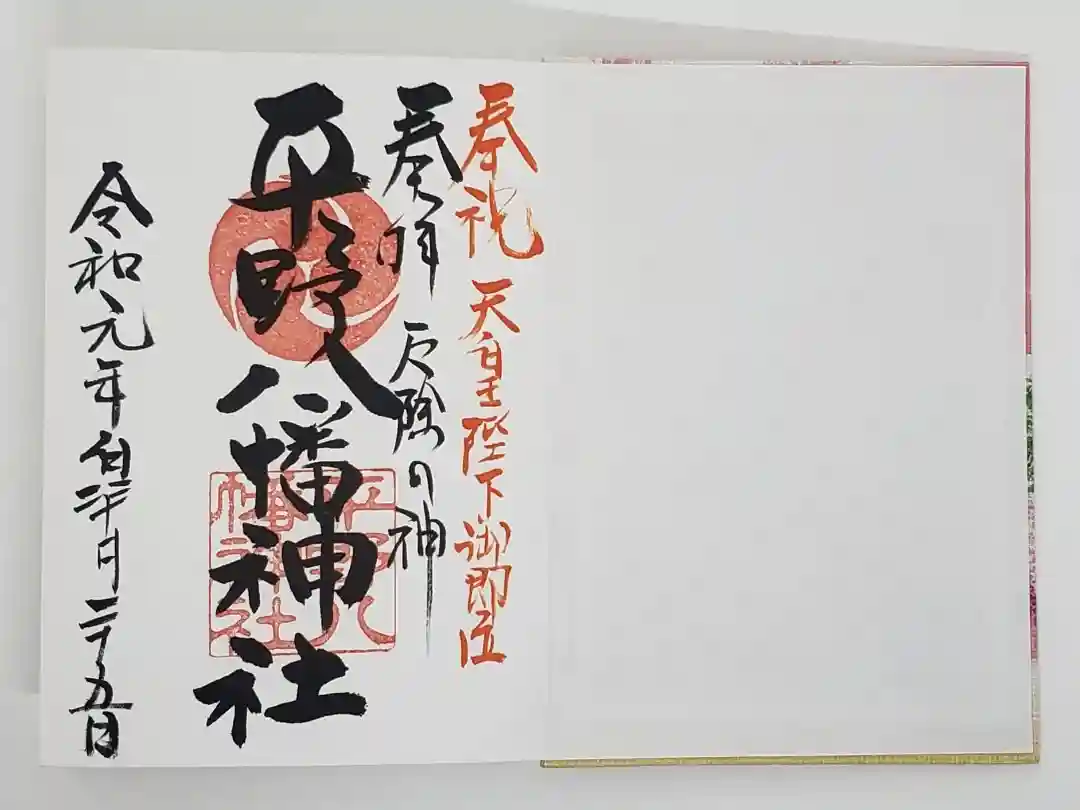 奉祝 天皇陛下御即位
奉拝 厄除の神
平野八幡神社
平野八
幡神社
令和元年皐月二十五日